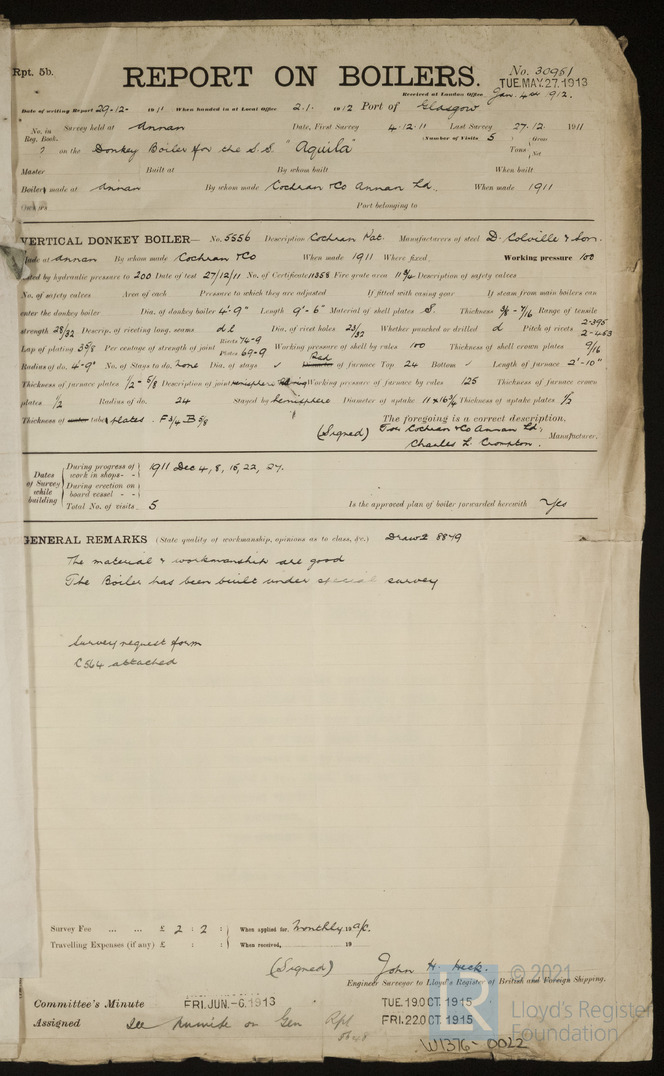 Rpt. 5b.
REPORT ON BOILERS.
No. 30951
TUE. MAY. 27. 1913
Received at London Office Jan. 4th 912.
Date of writing Report 29-12- 1911 When handed in at Local Office 2.1. 1912 Port of Glasgow
No. in Reg. Book. Survey held at Annan Date, First Survey 4.12.11 Last Survey 27.12. 1911
(Number of Visits 5
? on the Donkey Boiler for the S.S. "Aquila" Tons { Gross Net
Master Built at By whom built When built
Boilers made at Annan By whom made Cochran & Co Annan Ld. When made 1911
Owners Port belonging to
VERTICAL DONKEY BOILER— No. 5556 Description Cochran Pat. Manufacturers of steel D. Colville & Son.
Made at Annan By whom made Cochran & Co When made 1911 Where fixed Working pressure 100
tested by hydraulic pressure to 200 Date of test 27/12/11 No. of Certificate 11358 Fire grate area 11 3/4 Description of safety valves
No. of safety valves Area of each Pressure to which they are adjusted If fitted with easing gear If steam from main boilers can
enter the donkey boiler Dia. of donkey boiler 4'-9" Length 9'-6" Material of shell plates S. Thickness 3/8 - 7/16 Range of tensile
strength 28/32 Descrip. of riveting long. seams d l Dia. of rivet holes 23/32 Whether punched or drilled d Pitch of rivets 2-395 2-453
Lap of plating 3 5/8 Per centage of strength of joint Rivets 74-9 Plates 69-9 Working pressure of shell by rules 100 Thickness of shell crown plates 9/16
Radius of do. 4'-9" No. of Stays to do. none Dia. of stays ✓ Rad of furnace Top 24 Bottom ✓ Length of furnace 2'-10"
Thickness of furnace plates 1/2 - 5/8 Description of joint hemisphere Working pressure of furnace by rules 125 Thickness of furnace crown
plates 1/2 Radius of do. 24 Stayed by hemisphere Diameter of uptake 11 x 16 3/4 Thickness of uptake plates 1/2
Thickness of water tube plates F 3/4 B 5/8
The foregoing is a correct description,
(Signed) For Cochran & Co Annan Ld,
Charles L. Crompton. Manufacturer.
Dates of Survey while building
During progress of work in shops - - 1911 Dec 4, 8, 15, 22, 27.
During erection on board vessel - - -
Total No. of visits 5
Is the approved plan of boiler forwarded herewith Yes
GENERAL REMARKS (State quality of workmanship, opinions as to class, &c.) Draw 8849
The material & workmanship are good
The Boiler has been built under special survey
Survey request form
C 564 attached
Survey Fee ... ... £ 2 : 2 : When applied for, Monthly 19 a/c.
Travelling Expenses (if any) £ : : When received, 19
(Signed) John H. Heck.
Engineer Surveyor to Lloyd's Register of British and Foreign Shipping.
Committee's Minute FRI. JUN. -6. 1913 TUE. 19 OCT. 1915
Assigned See minute on Gen Rpt FRI. 22 OCT. 1915
© 2021
LR
Lloyd's Register
Foundation
W1376-0022